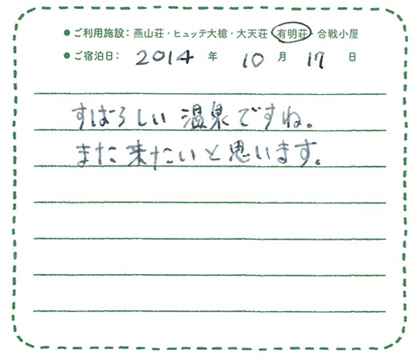 ●ご利用施設：燕山荘・ヒュッテ大槍・大天荘・有明荘・合戦小屋
●ご宿泊日：2014年10月17日
すばらしい温泉ですね。
また来たいと思います。